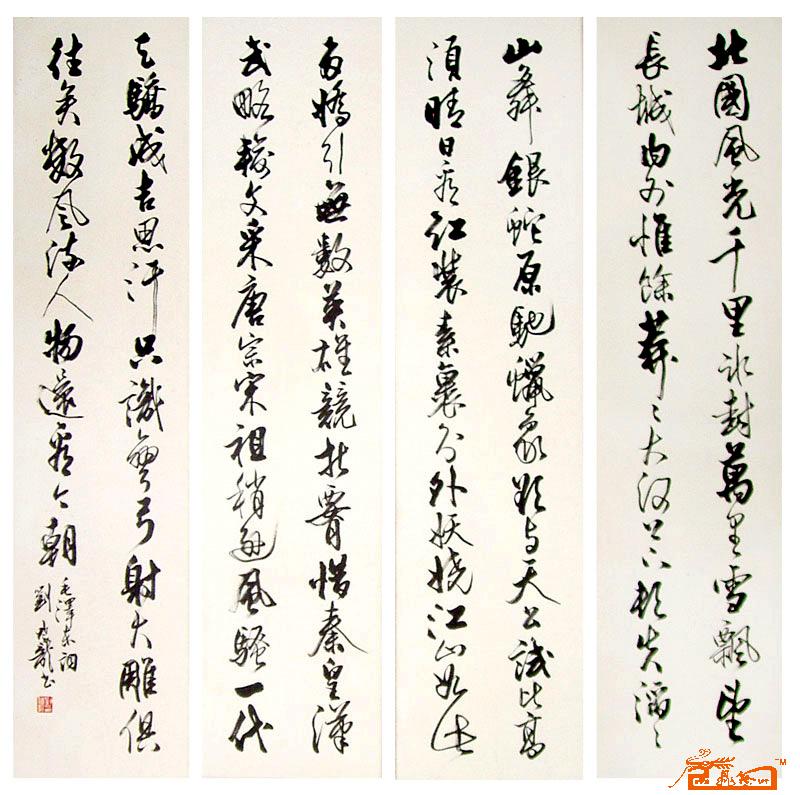 北國風光千里冰封萬里雪飄望
長城内外惟餘莽〻大河上下頓失滔〻
山舞銀蛇原馳蠟象欲与天公試比高
須晴日看紅裝素裹分外妖嬈江山如此
多嬌引無數英雄競折腰惜秦皇漢
武略輸文采唐宗宋祖稍遜風騷一代
天驕成吉思汗只識彎弓射大雕俱
往矣數風流人物還看今朝
毛澤東詞
劉成龍书